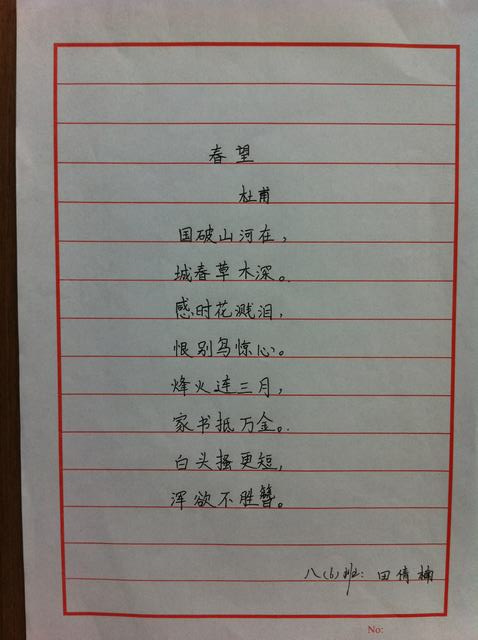 春望
杜甫
国破山河在，
城春草木深。
感时花溅泪，
恨别鸟惊心。
烽火连三月，
家书抵万金。
白头搔更短，
浑欲不胜簪。
八(6)班：田倩楠
No: